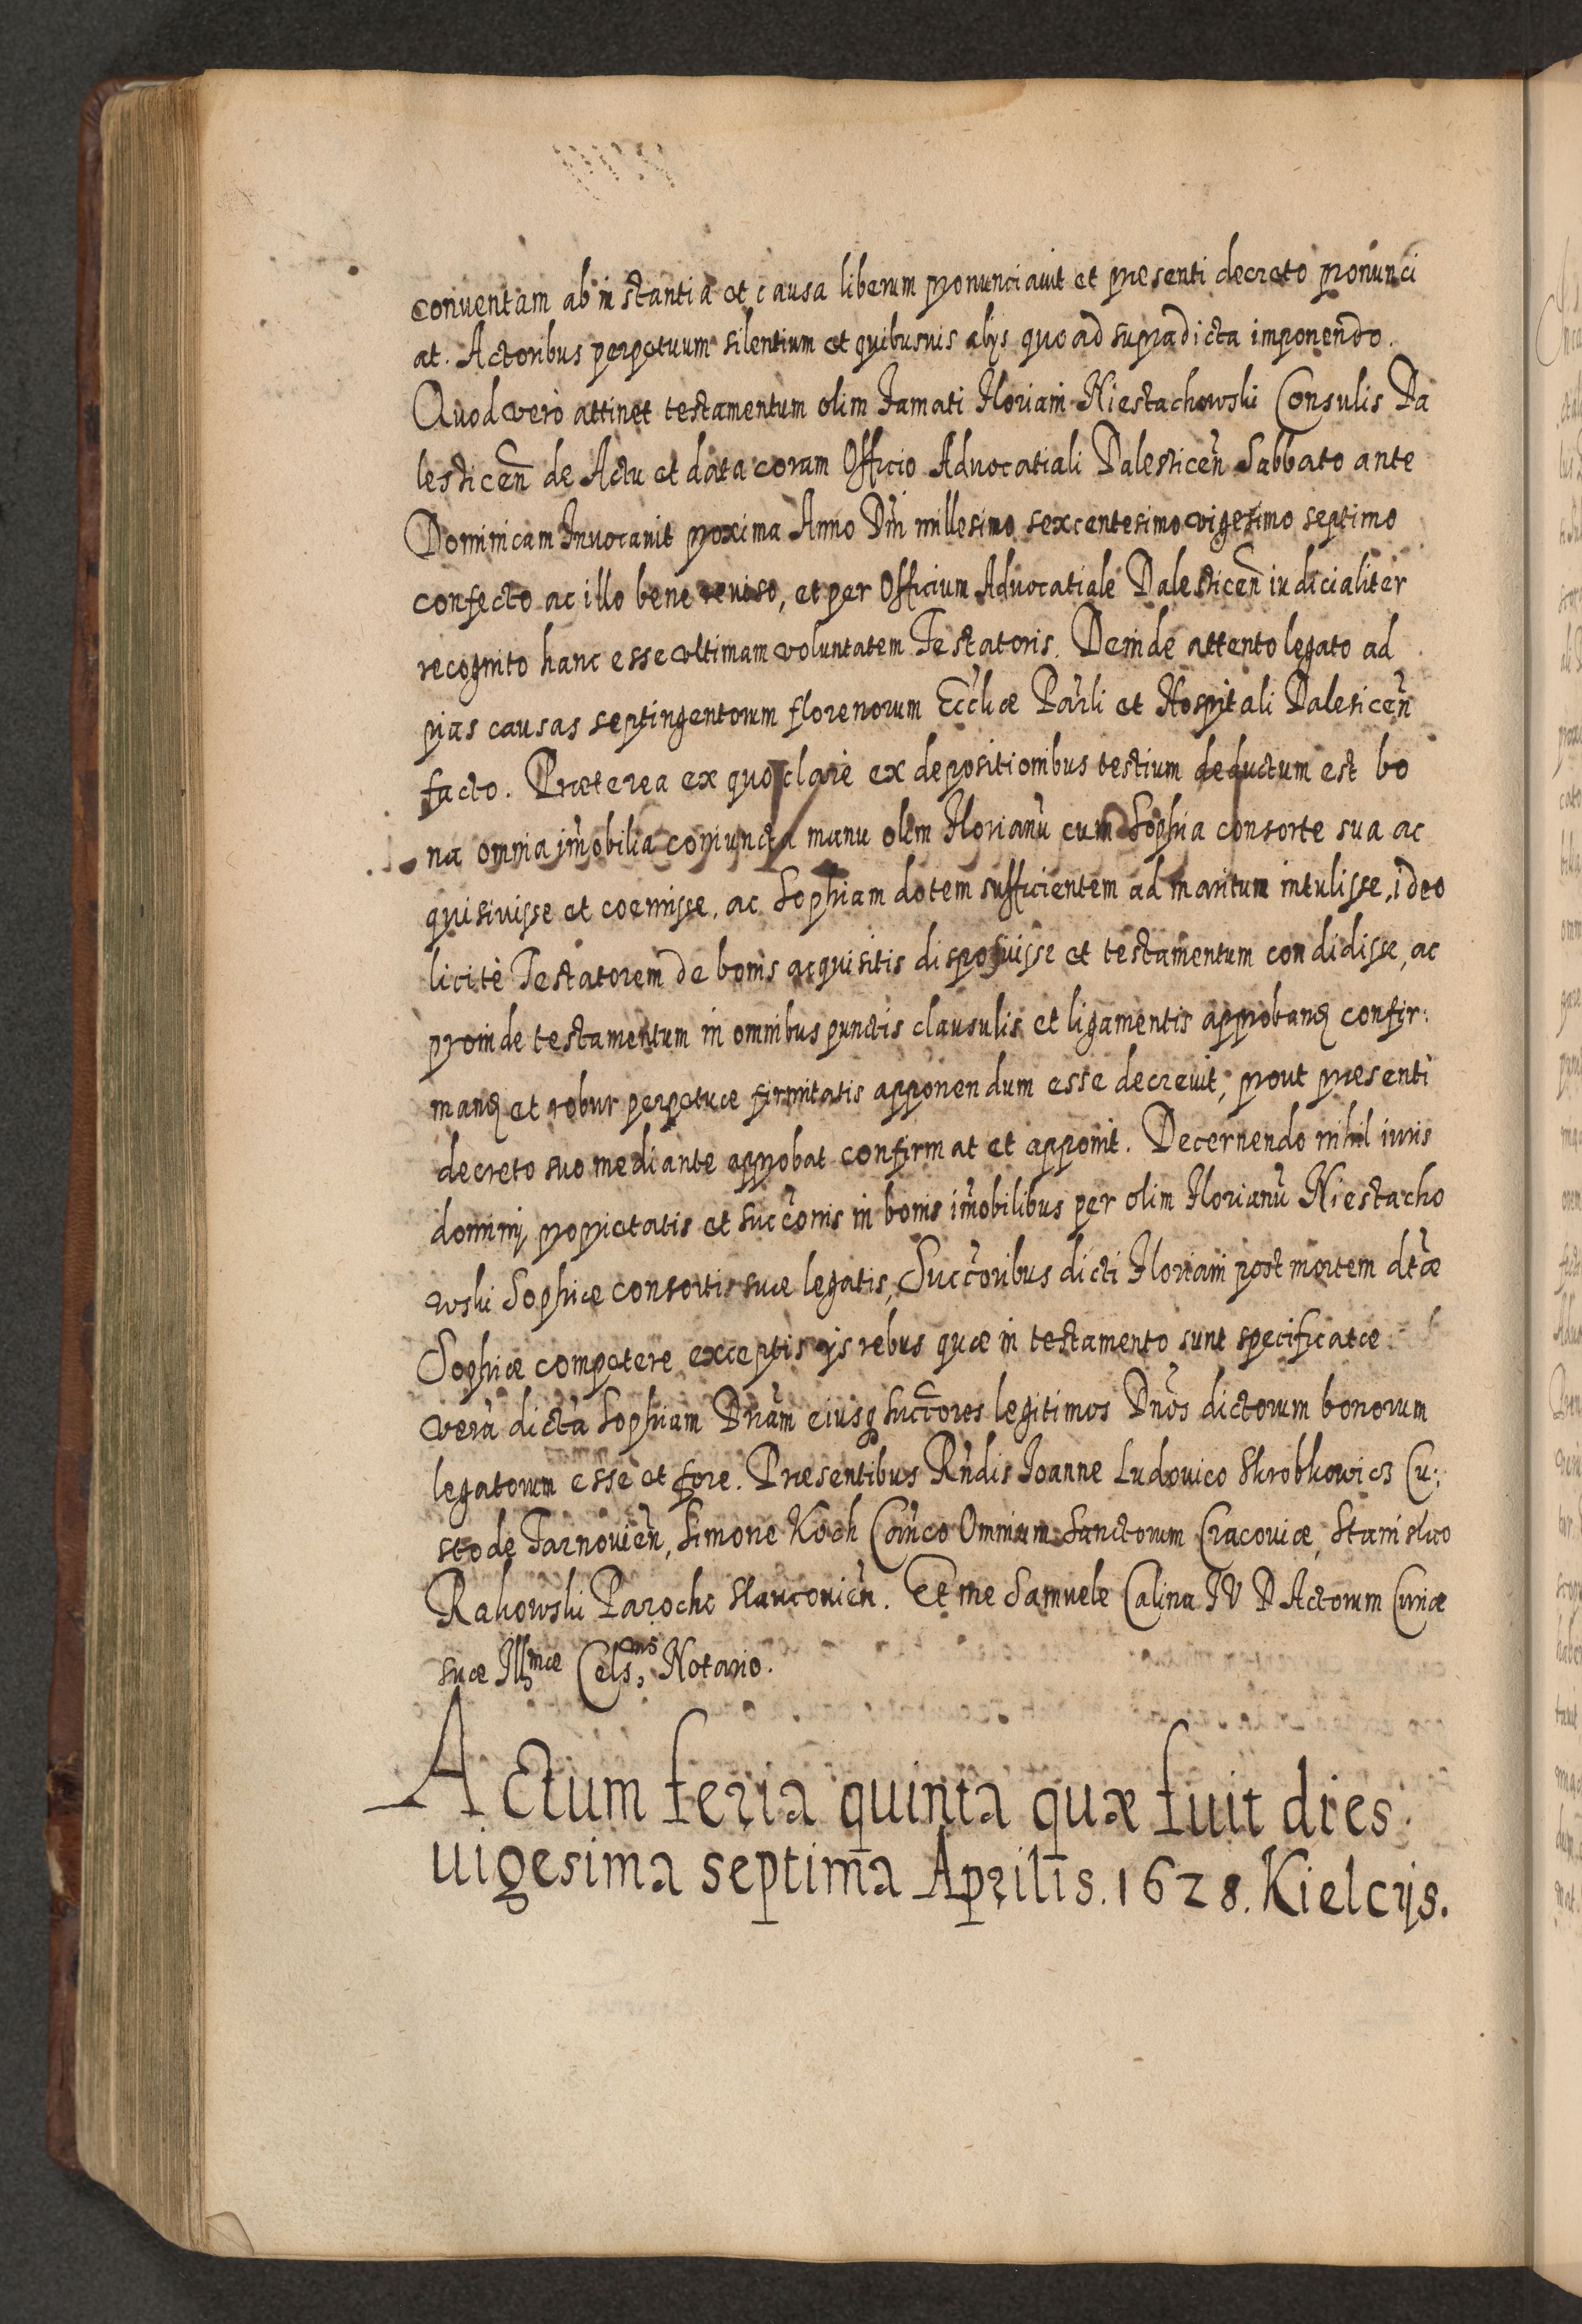 conventam ab instantia et causa liberum pronunciavit et presenti decreto pronunci
at. Actoribus perpetuum silentium et quibusvis alijs quo ad supradicta imponendo.
Quod verò attinet testamentum olim Famati Floriani Niestachowski Consulis Da
lesticen̄ de Actu et data coram Officio Advocatiali Dalesticen̄ Sabbato ante
Dominicam Invocavit proxima Anno Dn̄i millesimo sexcentesimo vigesimo septimo
confecto ac illo bene reviso, et per Officium Advocatiale Dalesticen̄ iudicialiter
recognito hanc esse ultimam voluntatem Testatoris. Deinde attento legato ad
pias causas septingentorum florenorum Eccliæ Parli et Hospitali Dalesicen̄
facto. Præterea ex quo clarè ex depositionibus testium deductum est bo
na omnia im̄obilia coniuncta manu olim Florianū cum Sophia consorte sua ac
quisivisse et coemisse, ac Sophiam dotem sufficientem ad maritum intulisse, ideo
licitè Testatorem de bonis acquisitis disposuisse et testamentum condidisse, ac
proinde testamentum in omnibus punctis clausulis et ligamentis approbanđ confir:
manđ et robur perpetuæ firmitatis apponendum esse decrevit, prout presenti
decreto suo mediante approbat confirmat et apponit. Decernendo nihil iuris
dominij proprietatis et succonis in bonis im̄obilibus per olim Florianū Niestacho
wski Sophiæ consorti suæ legatis, Succoribus dicti Floriani post mortem dtæ
Sophiæ competere exceptis ijs rebus quæ in testamento sunt specificatæ
verà dicta Sophiam Dnam eiusq succtores legitimos Dnos dictorum bonorum
legatorum esse et fore. Præsentibus Rndis Joanne Ludovico Skrobkowicz Cu:
stode Tarnovien̄, Simone Koch Can̄co Omnium Sanctorum Cracoviæ, Stanislao
Rakowski Parocho Slavcovien̄. Et me Samuele Calina JV D Actorum Curiæ
suæ Illmæ Celsnis Notario.
Actum feria quinta quæ fuit dies
uigesima septima Aprilis. 1628. Kielcijs.